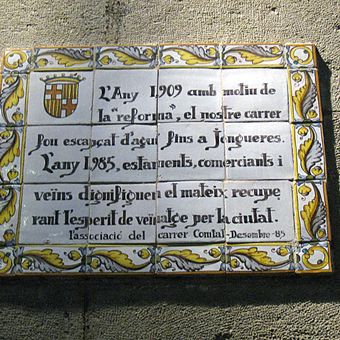 L'Any 1.909 amb motiu de
la "reforma", el nostre carrer
fou escapçat d'aquí fins a Jonqueres.
L'any 1.985, estaments, comerciants i
veïns dignifiquen el mateix, recupe
rant l'esperit de veïnatge per la ciutat.
l'associació del carrer Comtal - Desembre - 85